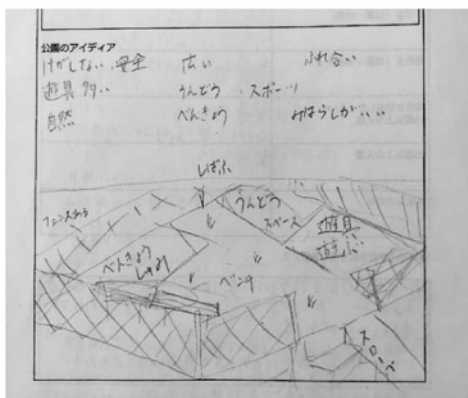 公園のアイディア
けがしない、安全 広い ふれ合い
遊具 多い うんどう、スポーツ
自然 べんきょう みはらしがいい
しばふ
うんどう
スペース
フェンスあり
遊具
遊ぶ
べんきょう
ベンチ
スロープ